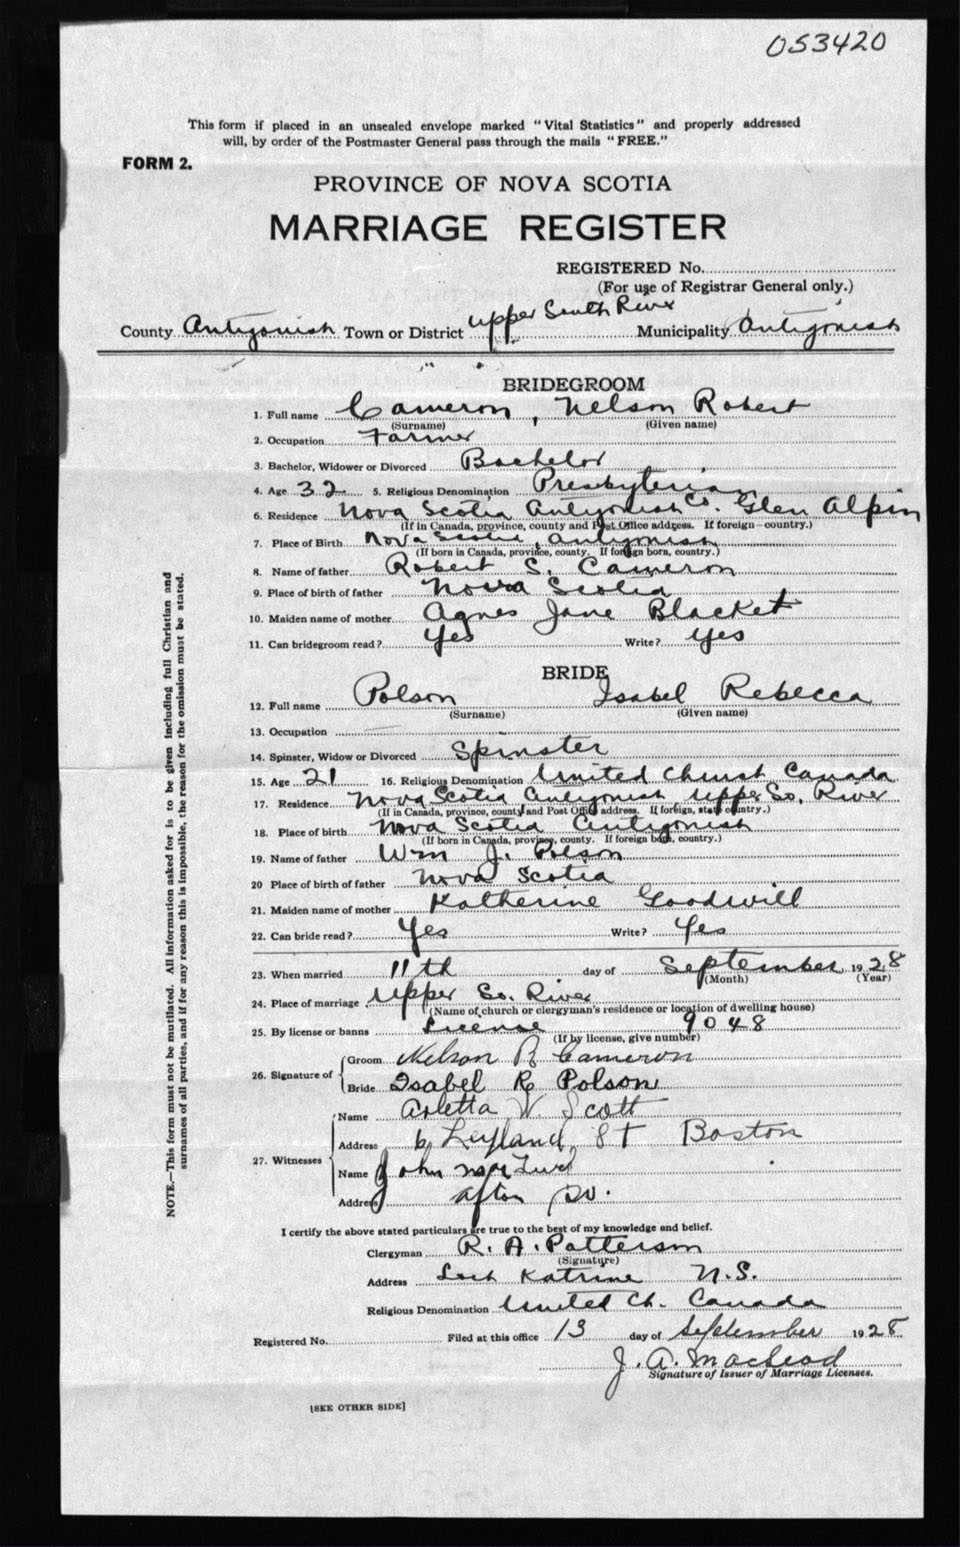 053420
This form if placed in an unsealed envelope marked "Vital Statistics" and properly addressed
will, by order of the Postmaster General pass through the mails "FREE."
FORM 2.
PROVINCE OF NOVA SCOTIA
MARRIAGE REGISTER
REGISTERED No.
(For use of Registrar General only.)
County Antigonish Town or District Upper South River Municipality Antigonish
BRIDEGROOM
1. Full name Cameron, Nelson Robert
(Surname) (Given name)
2. Occupation Farmer
3. Bachelor, Widower or Divorced Bachelor
4. Age 32 5. Religious Denomination Presbyterian
6. Residence Nova Scotia Antigonish Co. Glen Alpin
(If in Canada, province, county and Post Office address. If foreign—country.)
7. Place of Birth Nova Scotia, Antigonish
(If born in Canada, province, county. If foreign born, country.)
8. Name of father Robert S. Cameron
9. Place of birth of father Nova Scotia
10. Maiden name of mother Agnes Jane Blacket
11. Can bridegroom read? Yes Write? Yes
BRIDE
12. Full name Polson Isabel Rebecca
(Surname) (Given name)
13. Occupation
14. Spinster, Widow or Divorced Spinster
15. Age 21 16. Religious Denomination United Church Canada
17. Residence Nova Scotia Antigonish Upper So. River
(If in Canada, province, county and Post Office address. If foreign, state country.)
18. Place of birth Nova Scotia Antigonish
(If born in Canada, province, county. If foreign born, country.)
19. Name of father Wm J. Polson
20 Place of birth of father Nova Scotia
21. Maiden name of mother Katherine Goodwill
22. Can bride read? Yes Write? Yes
23. When married 11th day of September 1928
(Month) (Year)
24. Place of marriage Upper So. River
(Name of church or clergyman's residence or location of dwelling house)
25. By license or banns License 9048
(If by license, give number)
26. Signature of
Groom Nelson R Cameron
Bride Isabel R. Polson
27. Witnesses
Name Arletta W. Scott
Address 6 Leyland St Boston
Name John
Address Afton
I certify the above stated particulars are true to the best of my knowledge and belief.
Clergyman R. A. Patterson
(Signature)
Address Loch Katrine N.S.
Religious Denomination United Ch. Canada
Registered No. Filed at this office 13 day of September 1928
J. A. MacLeod
Signature of Issuer of Marriage Licenses.
[SEE OTHER SIDE]
NOTE.—This form must not be mutilated. All information asked for is to be given including full Christian and
surnames of all parties, and if for any reason this is impossible, the reason for the omission must be stated.